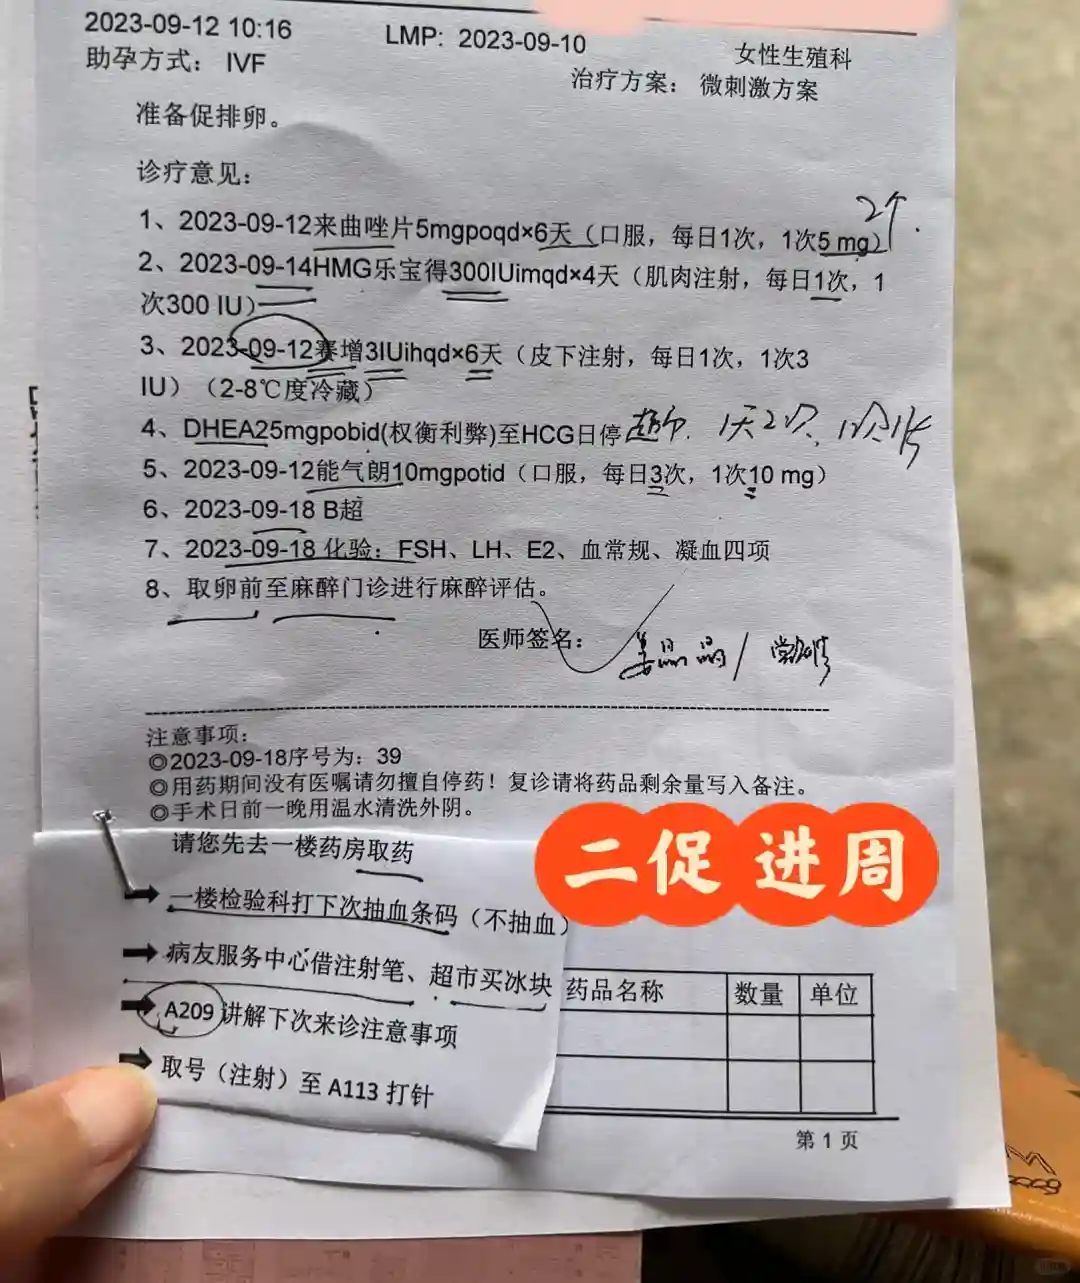 2023-09-12 10:16
LMP: 2023-09-10
女性生殖科
助孕方式： IVF
治疗方案： 微刺激方案
准备促排卵。
诊疗意见：
2个.
1、2023-09-12来曲唑片5mgpoqd×6天（口服，每日1次，1次5 mg）
2、2023-09-14HMG乐宝得300IUimqd×4天（肌肉注射，每日1次，1
次300 IU）
3、2023-09-12赛增3IUihqd×6天（皮下注射，每日1次，1次3
IU）（2-8℃度冷藏）
4、DHEA25mgpobid(权衡利弊)至HCG日停 1天2次、
5、2023-09-12能气朗10mgpotid（口服，每日3次，1次10 mg）
6、2023-09-18 B超
7、2023-09-18 化验：FSH、LH、E2、血常规、凝血四项
8、取卵前至麻醉门诊进行麻醉评估。
医师签名：
注意事项：
◎2023-09-18序号为：39
◎用药期间没有医嘱请勿擅自停药！复诊请将药品剩余量写入备注。
◎手术日前一晚用温水清洗外阴。
二促 进周
请您先去一楼药房取药
➡一楼检验科打下次抽血条码（不抽血）
➡病友服务中心借注射笔、超市买冰块
➡A209 讲解下次来诊注意事项
➡取号（注射）至 A113 打针
药品名称 数量 单位
第 1 页